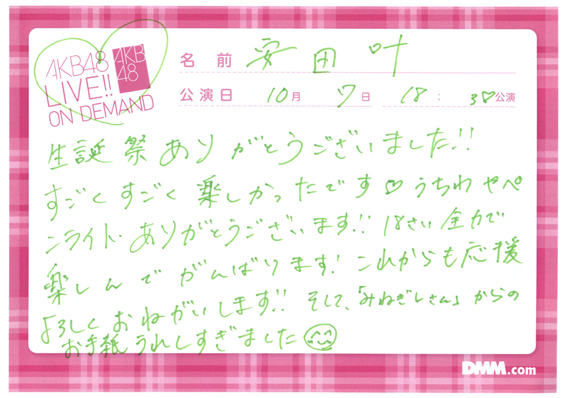 AKB48
LIVE!!
ON DEMAND
AKB
48
名前 安田 叶
公演日 10月 7日 18:30♡公演
生誕祭ありがとうございました!!
すごくすごく楽しかったです♡うちわやペ
ンライト、ありがとうございます!! 18さい全力で
楽しんでがんばります! これからも応援
よろしくおねがいします!! そして、「みねぎしさん」からの
お手紙うれしすぎました
DMM.com